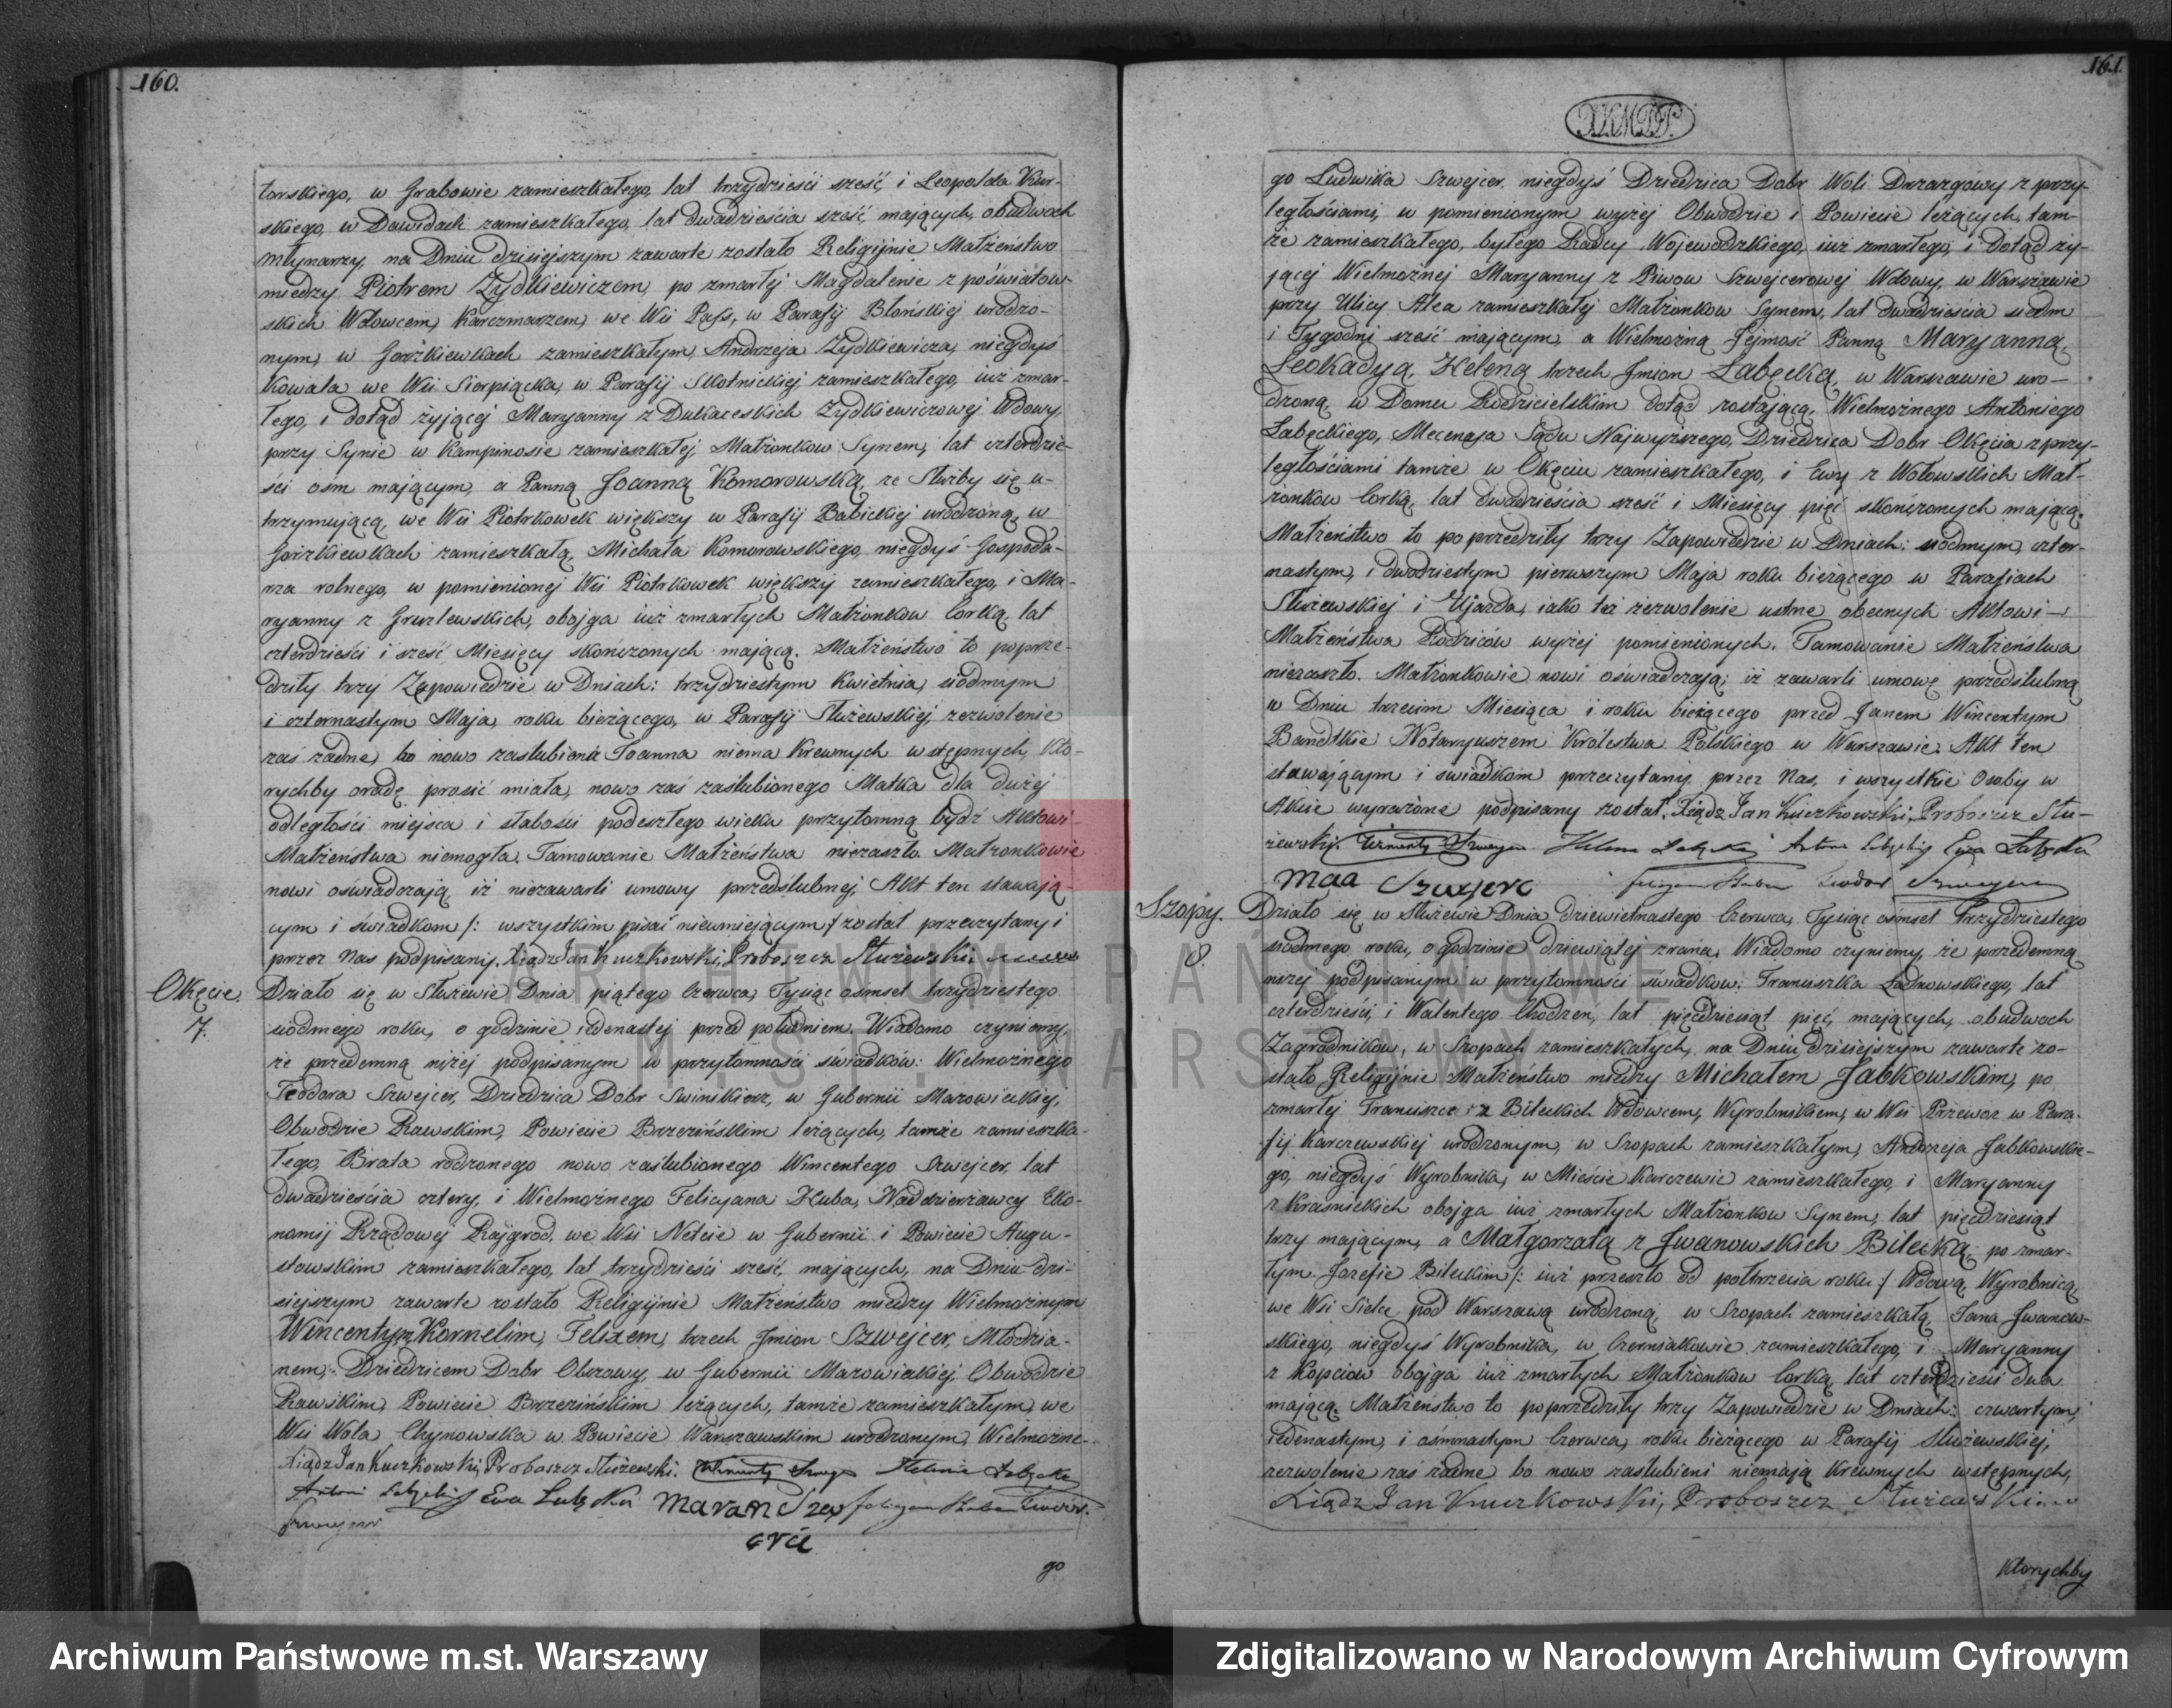 160.
torskiego, w Grabowie zamieszkałego, lat trzydzieści sześć, i Leopolda Kur-
skiego, w Dawidach zamieszkałego, lat dwadzieścia sześć mających, obudwoch
Młynarzy, na Dniu dzisiejszym zawarte zostało Religijnie Małżeństwo
między Piotrem Zydkiewiczem, po zmarłej Magdalenie z poświatow-
skich Wdowcem, Karczmarzem, we Wsi Pass, w Parafij Błońskiej urodzo-
nym, w Gorzkiewkach zamieszkałym, Andrzeja Zydkiewicza, niegdyś
Kowala we Wsi Sierpiącka, w Parafij Skotnickiej zamieszkałego, iuż zmar-
łego, i dotąd żyjącej Maryanny z Dukaceskich Zydkiewiczowej Wdowy,
przy Synie w Kampinosie zamieszkałej, Małżonkow Synem, lat czterdzie-
ści ośm mającym, a Panną Joanną Komorowską, ze Służby się u-
trzymującą, we Wsi Piotrkowek większy w Parafij Babickiej urodzoną, w
Gorzkiewkach zamieszkałą, Michała Komorowskiego, niegdyś Gospoda-
rza rolnego, w pomienionej Wsi Piotrkowek większy zamieszkałego, i Ma-
ryanny z Gruzlewskich, obojga iuż zmarłych Małżonkow Corką, lat
czterdzieści i sześć Miesięcy skończonych mającą. Małżeństwo to poprze-
dziły trzy Zapowiedzie w Dniach: trzydziestym Kwietnia, siodmym
i czternastym Maja, roku bieżącego, w Parafij Służewskiej, zezwolenie
zaś żadne, bo nowo zaslubiona Joanna niema Krewnych wstępnych, kto-
rychby oradę prosić miała, nowo zaś zaślubionego Matka dla dużej
odległości miejsca i słabości podeszłego wieku przytomną bydź Aktowi-
Małżeństwa niemogła. Tamowanie Małżeństwa niezaszło. Małżonkowie
nowi oświadczają iż niezawarli umowy przedślubnej. Akt ten stawają-
cym i świadkom /: wszystkim pisać nieumiejącym :/ został przeczytany i
przez Nas podpisany. Xiądz Jan Kuczkowski, Proboszcz Służewski.
Okęcie. Działo się w Służewie Dnia piątego Czerwca, Tysiąc ośmset trzydziestego
7. siodmego roku, o godzinie iedenastej przed południem. Wiadomo czyniemy,
że przedemną niżej podpisanym w przytomności świadków: Wielmożnego
Teodora Szwejcer, Dziedzica Dobr Swinskierz, w Gubernii Mazowieckiej,
Obwodzie Rawskim, Powiecie Brzezińskim leżących, tamże zamieszka-
łego, Brata rodzonego nowo zaślubionego Wincentego Szwejcer, lat
dwadzieścia cztery, i Wielmożnego Felicyana Huba, Naddzierżawcy Eko-
nomij Rządowej Rajgrod, we Wsi Netcie w Gubernii i Powiecie Augu-
stowskim zamieszkałego, lat trzydzieści sześć, mających, na Dniu dzi-
siejszym zawarte zostało Religijnie Małżeństwo między Wielmożnym
Wincentym Kornelim, Felixem, trzech Jmion Szwejcer, Młodzia-
nem, Dziedzicem Dobr Olszowy, w Gubernii Mazowieckiej Obwodzie
Rawskim, Powiecie Brzezińskim leżących, tamże zamieszkałym, we
Wsi Wola Chynowska w Powiecie Warszawskim urodzonym, Wielmożne-
Xiądz Jan Kuczkowski, Proboszcz Służewski. Helena Łabęcka
Antoni Łabęcki Ewa Łabęcka
go
161.
go Ludwika Szwejcer, niegdyś Dziedzica Dobr Woli Drzazgowy z przy-
ległościami, w pomienionym wyżej Obwodzie i Powiecie leżących, tam-
że zamieszkałego, byłego Radcy Wojewodzkiego, iuż zmarłego, i dotąd ży-
jącej Wielmożnej Maryanny z Piwow Szwejcerowej Wdowy, w Warszawie
przy Ulicy Alea zamieszkałej Małżonkow Synem, lat dwadzieścia siedm
i Tygodni sześć mającym, a Wielmożną Jejmość Panną Maryanną,
Leokadyą, Heleną trzech Jmion Łabęcką, w Warszawie uro-
dzoną, w Domu Rodzicielskim dotąd zostającą, Wielmożnego Antoniego
Łabęckiego, Mecenasa Sądu Najwyższego, Dziedzica Dobr Okęcia z przy-
ległościami tamże w Okęciu zamieszkałego, i Ewy z Wołowskich Mał-
żonkow Corką, lat dwadzieścia sześć i Miesięcy pięć skończonych mającą.
Małżeństwo to poprzedziły trzy Zapowiedzie w Dniach: siodmym, czter-
nastym, i dwudziestym pierwszym Maja roku bieżącego w Parafiach
Służewskiej i Ujazda, iako też zezwolenie ustne obecnych Aktowi
Małżeństwa Rodziców wyżej pomienionych. Tamowanie Małżeństwa
niezaszło. Małżonkowie nowi oświadczają; iż zawarli umowę przedślubną
w Dniu trzecim Miesiąca i roku bieżącego przed Janem Wincentym
Bandtkie Notaryuszem Królestwa Polskiego w Warszawie. Akt ten
stawającym i świadkom przeczytany, przez Nas, i wszystkie Osoby w
Akcie wyrażone podpisany został. Xiądz Jan Kuczkowski, Proboszcz Słu-
żewski. Helena Łabęcka Antoni Łabęcki Ewa Łabęcka
Teodor Szwejcer
Szopy. Działo się w Służewie Dnia dziewietnastego Czerwca, Tysiąc ośmset trzydziestego
8. siodmego roku, o godzinie dziewiątej zrana. Wiadomo czyniemy, że przedemną
niżej podpisanym w przytomności świadkow: Franciszka Ładnowskiego, lat
czterdzieści, i Walentego Chodzeń, lat pięćdziesiąt pięć, mających, obudwoch
Zagrodnikow, w Szopach zamieszkałych, na Dniu dzisiejszym zawarte zo-
stało Religijnie Małżeństwo między Michałem Jabkowskim, po
zmarłej Franciszce z Bileckich Wdowcem, Wyrobnikiem, w Wsi Przewoz w Para-
fij Karczewskiej urodzonym, w Szopach zamieszkałym, Andrzeja Jabkowskie-
go, niegdyś Wyrobnika, w Mieście Karczewie zamieszkałego, i Maryanny
z Kraśnickich obojga iuż zmarłych Małżonkow Synem, lat pięćdziesiąt
trzy mającym, a Małgorzatą z Jwanowskich Bilecką, po zmar-
łym Jozefie Bileckim /: iuż przeszło od półtrzecia roku :/ Wdową, Wyrobnicą
we Wsi Sielce pod Warszawą urodzoną, w Szopach zamieszkałą, Jana Jwanow-
skiego, niegdyś Wyrobnika, w Czerniakowie zamieszkałego, i Maryanny
z Kopciow obojga iuż zmarłych Małżonkow Corką, lat czterdzieści dwa
mającą. Małżeństwo to poprzedziły trzy Zapowiedzie w Dniach: czwartym,
iedenastym, i ośmnastym Czerwca, roku bieżącego w Parafij Służewskiej,
zezwolenie zaś żadne bo nowo zaślubieni niemają Krewnych wstępnych,
Xiądz Jan Kuczkowski, Proboszcz Służewski.
ktorychby
ARCHIWUM PAŃSTWOWE
M.ST. WARSZAWY
Archiwum Państwowe m.st. Warszawy
Zdigitalizowano w Narodowym Archiwum Cyfrowym